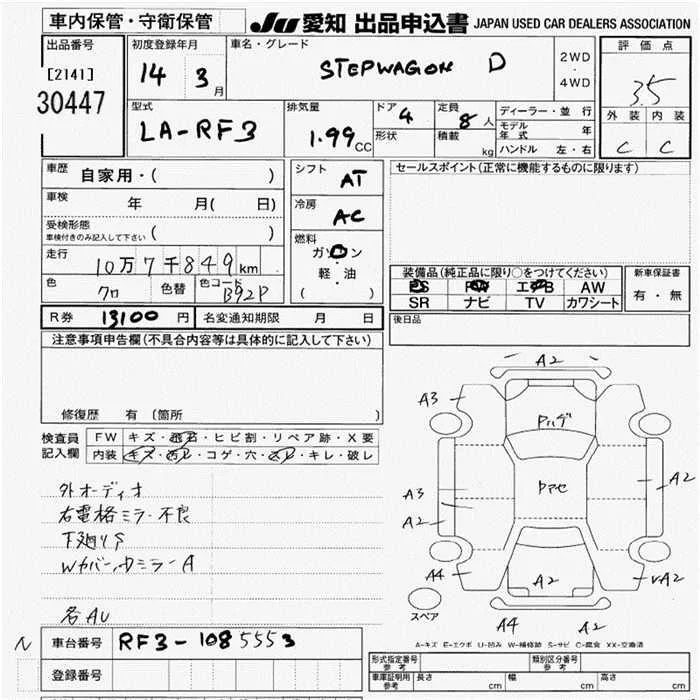 車内保管・守衛保管
JU 愛知 出品申込書 JAPAN USED CAR DEALERS ASSOCIATION
出品番号
[2141]
30447
初度登録年月
14 年 3 月
車名・グレード
STEPWAGON D
2WD
4WD
評価点
3.5
外装 内装
C C
型式
LA-RF3
排気量
1.99 CC
ドア 4
形状
定員 8 人
積載 kg
ディーラー・並行
モデル年式 年
ハンドル 左・右
車歴 自家用・( )
車検 年 月( 日)
受検形態
車検付きのみ記入して下さい ( )
走行 10万7千849km
色 クロ 色替 色コード B92P
シフト AT
冷房 AC
燃料
ガソリン
軽・油
( )
セールスポイント(正常に機能するものに限ります)
装備品(純正品に限り○をつけてください)
PS PW エアB AW
SR ナビ TV カワシート
新車保証書
有・無
R券 13100 円 名変通知期限 月 日
後日品
注意事項申告欄(不具合内容等は具体的に記入して下さい)
修復歴 有 (箇所 )
検査員記入欄
FW キズ・飛石・ヒビ割・リペア跡・X要
内装 キズ・汚レ・コゲ・穴・スレ・キレ・破レ
外オーディオ
右電格ミラー不良
下廻りS
Wカバー、ミラーA
各AU
A2
A3
Pハゲ
A3
A2
Pアセ
A2
A4
A2
A2
スペア
A4 A2
A-キズ E-エクボ U-凹み W-補修跡 S-サビ C-腐食 XX-交換済
N
車台番号 RF3-1085553
登録番号
形式指定番号 参考
類別区分番号 参考
車庫証明用 参考 長さ cm 幅 cm 高さ cm